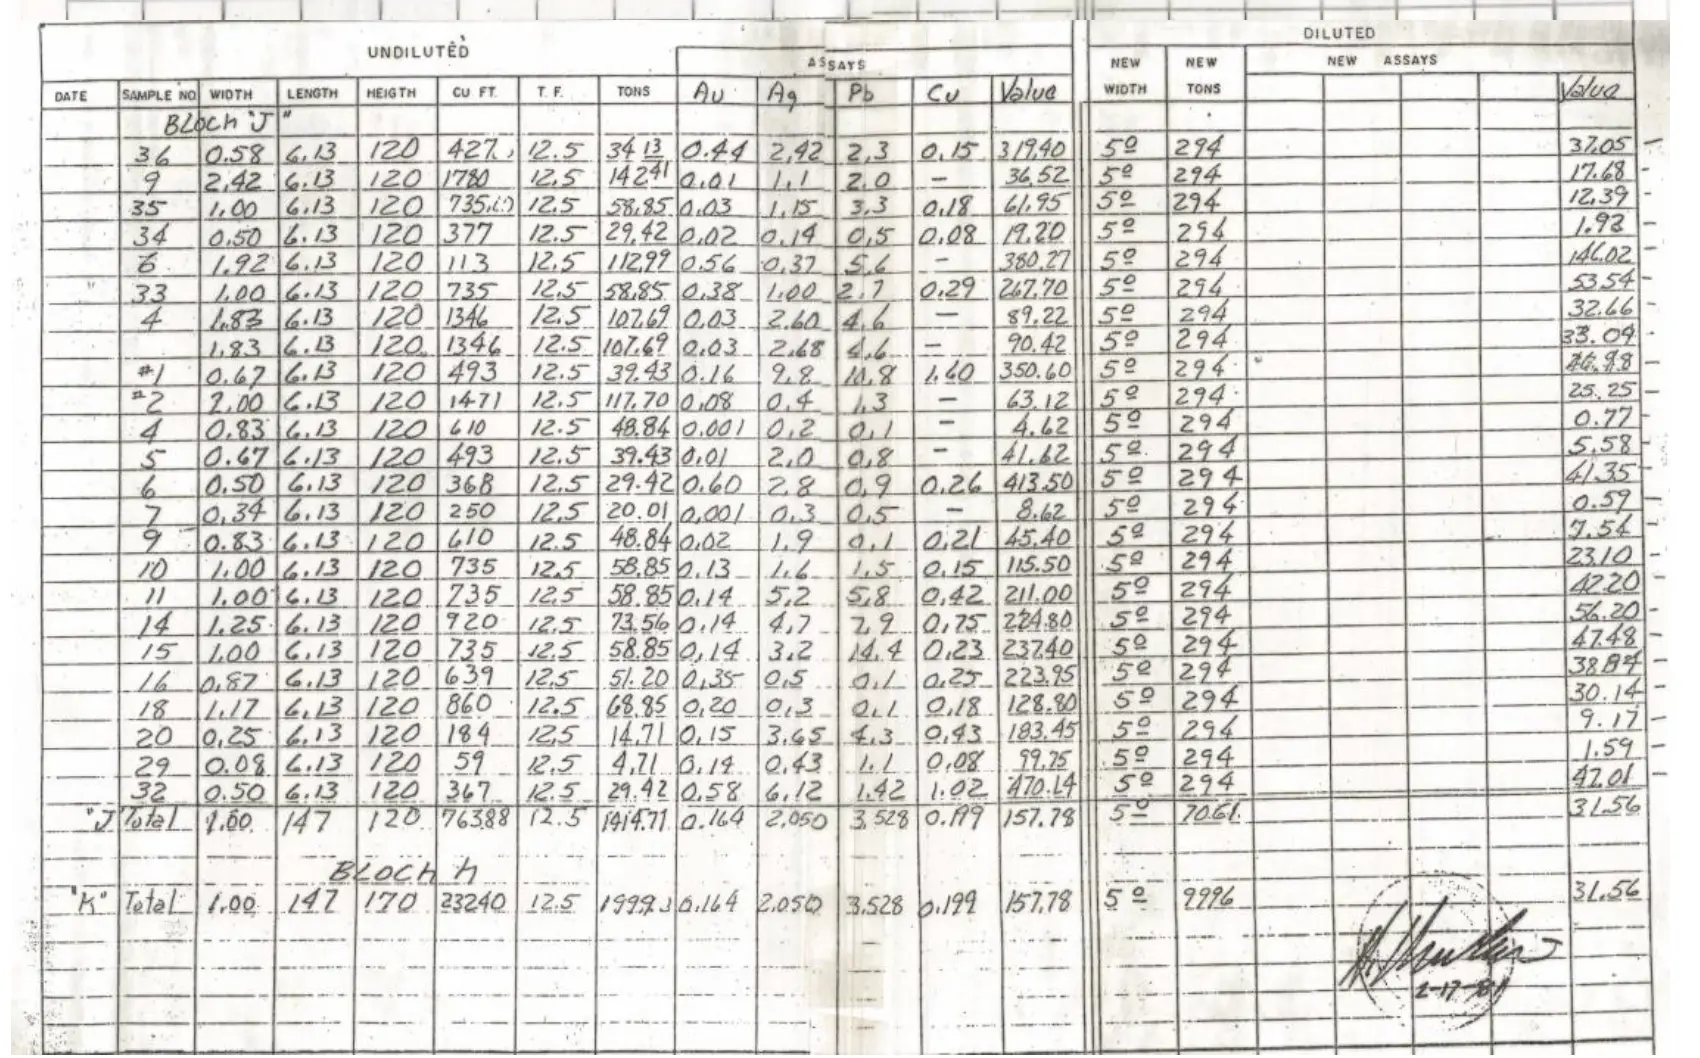 UNDILUTED ASSAYS DILUTED
NEW WIDTH NEW TONS NEW ASSAYS
DATE SAMPLE NO. WIDTH LENGTH HEIGTH CU FT. T. F. TONS Au Ag Pb Cu Value Value
BLOCH "J"
36 0.58 6.13 120 427 12.5 34 13 0.44 2.42 2.3 0.15 319.40 5º 294 37.05
9 2.42 6.13 120 1780 12.5 142 41 0.01 1.1 2.0 — 36.52 5º 294 17.68
35 1.00 6.13 120 735 12.5 58.85 0.03 1.15 3.3 0.18 61.95 5º 294 12.39
34 0.50 6.13 120 377 12.5 29.42 0.02 0.14 0.5 0.08 19.20 5º 294 1.92
6 1.92 6.13 120 113 12.5 112.99 0.56 0.37 5.6 — 380.27 5º 294 146.02
33 1.00 6.13 120 735 12.5 58.85 0.38 1.00 2.7 0.29 267.70 5º 294 53.54
4 1.83 6.13 120 1346 12.5 107.69 0.03 2.60 4.6 — 89.22 5º 294 32.66
1.83 6.13 120 1346 12.5 107.69 0.03 2.68 4.6 — 90.42 5º 294 33.09
#1 0.67 6.13 120 493 12.5 39.43 0.16 9.8 10.8 1.60 350.60 5º 294
#2 2.00 6.13 120 1471 12.5 117.70 0.08 0.4 1.3 — 63.12 5º 294 25.25
4 0.83 6.13 120 610 12.5 48.84 0.001 0.2 0.1 — 4.62 5º 294 0.77
5 0.67 6.13 120 493 12.5 39.43 0.01 2.0 0.8 — 41.62 5º 294 5.58
6 0.50 6.13 120 368 12.5 29.42 0.60 2.8 0.9 0.26 413.50 5º 294 41.35
7 0.34 6.13 120 250 12.5 20.01 0.001 0.3 0.5 — 8.62 5º 294 0.59
9 0.83 6.13 120 610 12.5 48.84 0.02 1.9 0.1 0.21 45.40 5º 294 7.54
10 1.00 6.13 120 735 12.5 58.85 0.13 1.6 1.5 0.15 115.50 5º 294 23.10
11 1.00 6.13 120 735 12.5 58.85 0.14 5.2 5.8 0.42 211.00 5º 294 42.20
14 1.25 6.13 120 920 12.5 73.56 0.14 4.7 7.9 0.75 224.80 5º 294 56.20
15 1.00 6.13 120 735 12.5 58.85 0.14 3.2 14.4 0.23 237.40 5º 294 47.48
16 0.87 6.13 120 639 12.5 51.20 0.35 0.5 0.1 0.25 223.95 5º 294 38.84
18 1.17 6.13 120 860 12.5 68.85 0.20 0.3 0.1 0.18 128.80 5º 294 30.14
20 0.25 6.13 120 184 12.5 14.71 0.15 3.65 4.3 0.43 183.45 5º 294 9.17
29 0.08 6.13 120 59 12.5 4.71 0.14 0.43 1.1 0.08 99.75 5º 294 1.59
32 0.50 6.13 120 367 12.5 29.42 0.58 6.12 1.42 1.02 470.14 5º 294 47.01
"J" Total 1.00 147 120 76388 12.5 1414.71 0.164 2.050 3.528 0.199 157.78 5º 7061 31.56
BLOCH K
"K" Total 1.00 147 170 23240 12.5 1999.2 0.164 2.050 3.528 0.199 157.78 5º 9996 31.56